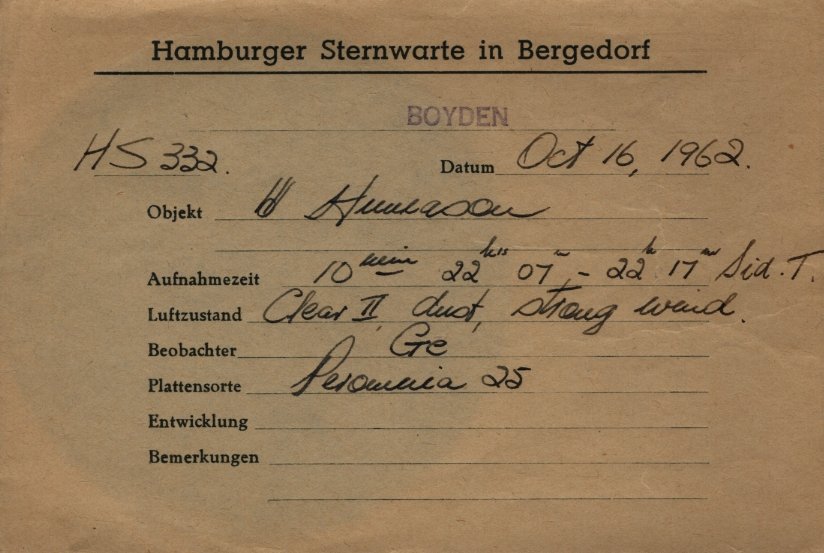 Hamburger Sternwarte in Bergedorf
BOYDEN
HS 332. Datum Oct 16, 1962.
Objekt Humason
Aufnahmezeit 10 min 22 hrs 07 m - 22 h 17 m Sid. T.
Luftzustand Clear II, dust, strong wind.
Beobachter Ge
Plattensorte Peromnia 25
Entwicklung
Bemerkungen